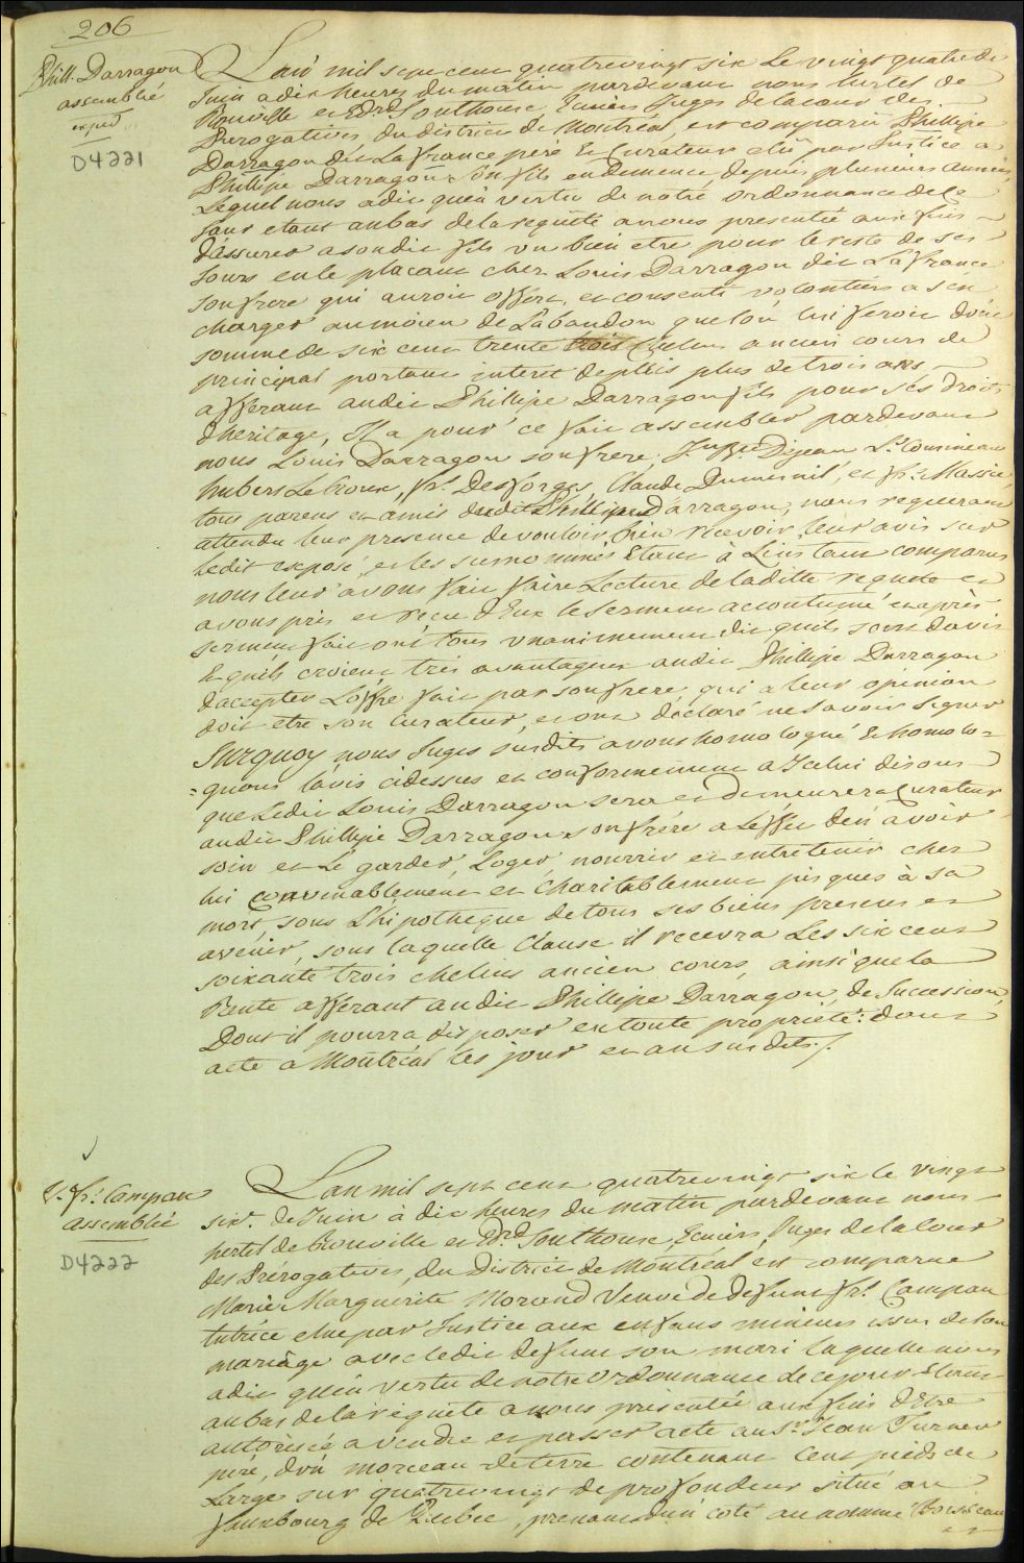 206
Phill. Darragon
assemblée
exped
D4221
L'an mil sept cent quatrevingt six Le vingt quatre de
Juin a dix heures du matin pardevant nous hertel de
Rouville et Edrd Southouse Ecuiers Juges de la cour des
Prerogatives du district de Montréal, est comparu Phillipe
Darragon dit La france pere & Curateur elû par Justice a
Phillipe Darragon Son fils en demence depuis plusieurs années,
Lequel nous a dit qu'en vertu de notre ordonnance de ce
jour etant au bas de la requête a nous presentée aux fins
d'assurer a son dit fils un bien etre pour le reste de ses
Jours en le placant chez Louis Darragon dit La france
son frere qui auroit offert et consenti volontiers a s'en
charger au moien de L'abandon que l'on lui feroit d'une
somme de six cent trente trois Chelins ancien cours de
principal portant interet depuis plus de trois ans
afferant au dit Phillipe Darragon fils pour ses droits
d'heritage, Il a pour ce fait assembler pardevant
nous Louis Darragon son frere, Dejean Ls. Cousineau
hubert Le Croux, fr. Desforges, Claude Dumesnil, et fr. Massie,
tous parens et amis dudit Phillipe Darragon, nous requerant
attendu leur presence de vouloir bien recevoir leur avis sur
ledit exposé et les susnommés Etant à L'instant comparus
nous leur avons fait faire Lecture de la ditte requete et
avons pris et reçu d'Eux le serment accoutumé et après
serment fait ont tous unanimement dit qu'ils sont d'avis
& qu'ils croient très avantageux au dit Phillipe Darragon
d'accepter L'offre fait par son frere, qui a leur opinion
doit etre son Curateur, et ont déclaré ne savoir signer
Surquoy nous Juges susdits avons homologué & homolo=
=guons l'avis cidessus et conformement a Icelui disons
que Ledit Louis Darragon sera et demeurera Curateur
au dit Phillipe Darragon son frére a L'effet d'en avoir
soin et Le garder, Loger, nourrir et entretenir chez
lui convenablement et charitablement jusques à sa
mort, sous L'hipotheque de tous ses biens presens et
avenir, sous laquelle Clause il recevra Les six cent
soixante trois chelins ancien cours, ainsi que la
Rente afferant au dit Phillipe Darragon, de Succession,
Dont il pourra disposer en toute proprieté: dont
acte a Montréal les jour et an susdits./.
V. fr. Campau
assemblée
D4222
L'an mil sept cent quatrevingt six le vingt
six. de Juin à dix heures du matin pardevant nous
hertel de Rouville et Edrd Southouse, Ecuiers, Juges de la Cour
des Prérogatives, du District de Montréal est comparue
Marie Marguerite Morand Veuve de defunt fr. Campau
tutrice elue par Justice aux enfans mineurs issus de son
mariage avec ledit defunt son mari laquelle nous
a dit qu'en vertu de notre Ordonnance de ce jour Etant
au bas de la requête a nous presentée aux fins d'Etre
autorisée a vendre et passer acte au Sr. Jean Turner
pere, d'un morceau de terre contenant Cent pieds de
Large sur quatrevingt de profondeur situé au
fauxbourg de Quebec, prenant d'un coté au nommé Boisseau